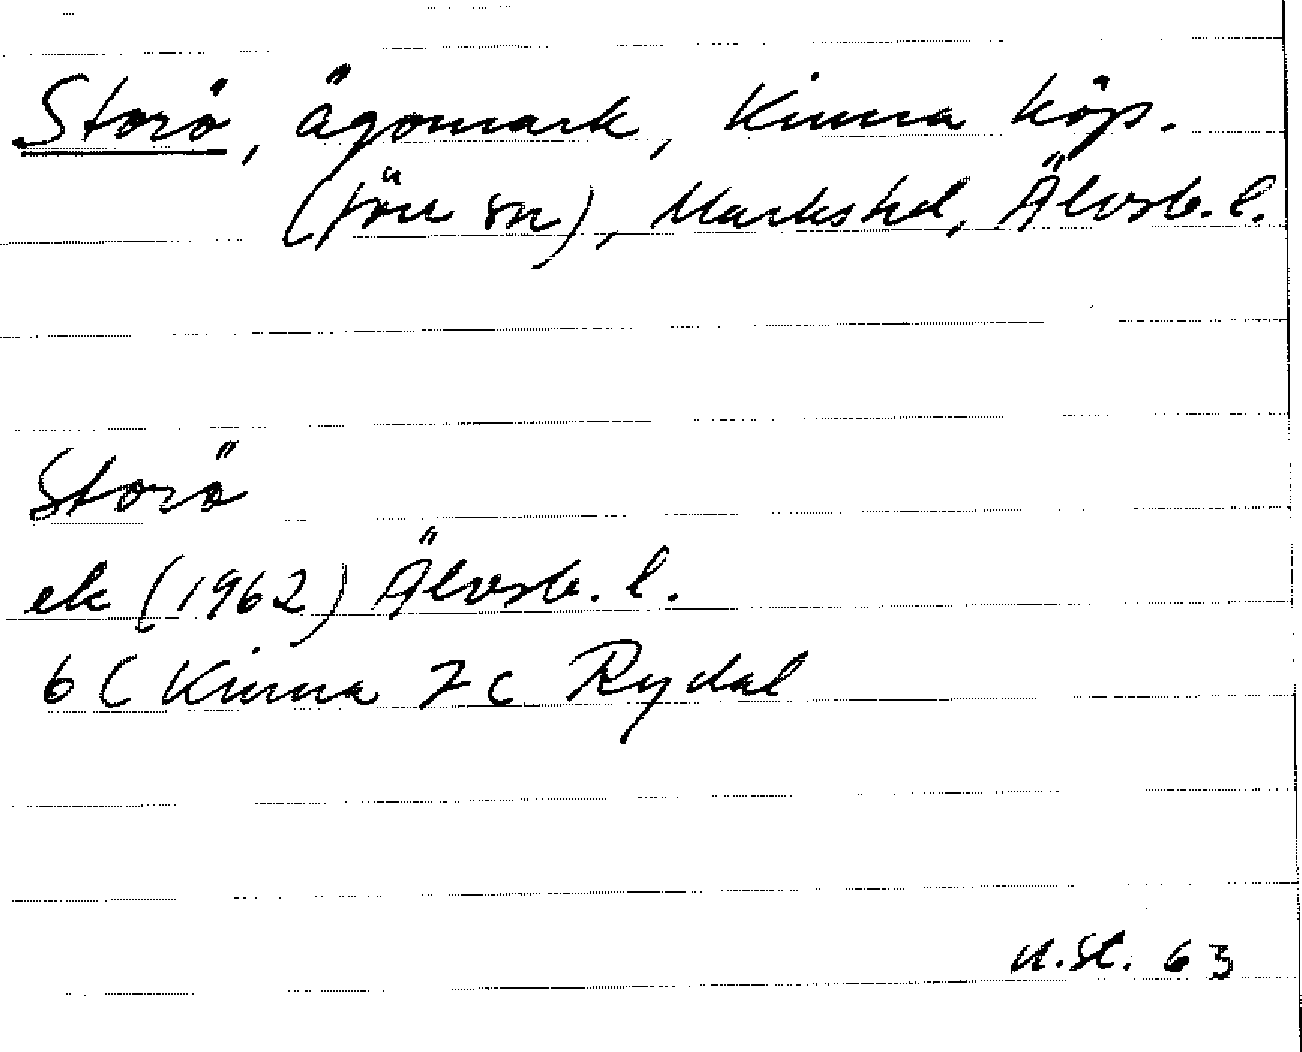 Storö, ägomark, Kinna köp.
(förr sn), Markshd, Älvsb. l.
Storö
ek (1962) Älvsb. l.
6 C Kinna 7 c Rydal
63